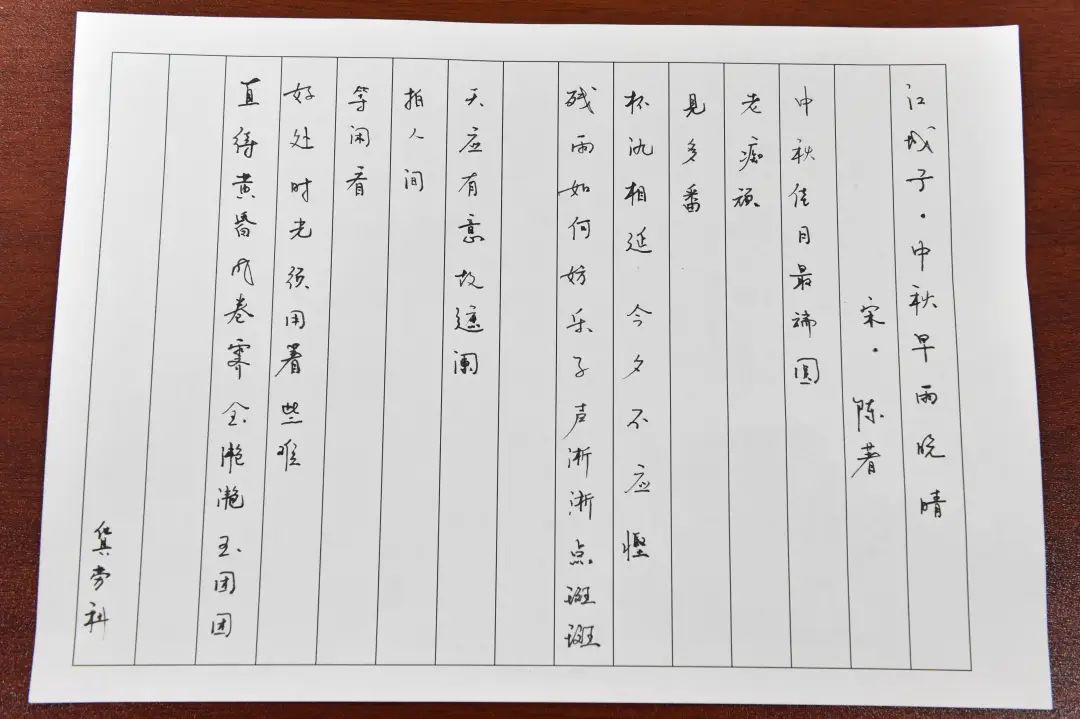 江城子·中秋早雨晚晴
宋·陈著
中秋佳月最端圆
老痴顽
见多番
杯氿相延今夕不应悭
残雨如何妨乐子声淅淅点斑斑
天应有意故遮阑
拍人间
等闲看
好处时光须用着些难
直待黄昏风卷霁金滟滟玉团团
劳科